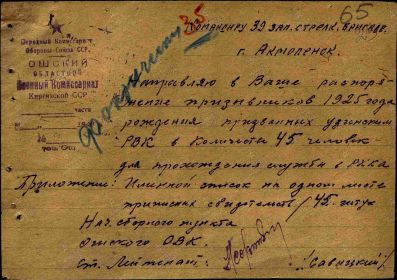 35
65
Командиру 39 зап. стрелк. бригады.
г. Акмолинск.
Народный Комиссариат
Обороны Союза ССР.
ОШСКИЙ
ОБЛАСТНОЙ
Военный Комиссариат
Киргизской ССР
часть
гор. Ош
Направляю в Ваше распоря-
жение призывников 1925 года
рождения призванных узгенским
РВК в количестве 45 человек
для прохождения службы в РККА
Приложение: Именной список на одном листе
приписных свидетельств /45. штук
Нач. сборного пункта
Ошского ОВК.
Ст. Лейтенант
/Савицкий/